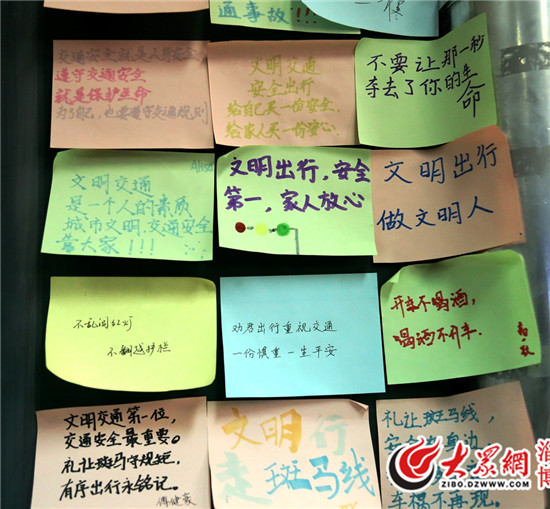 通事故!!!
交通安全就是人
遵守交通安全
就是保护生命
为了自己,也要遵守交通规则
文明交通
安全出行
给自己买一份安全.
给家人买一份安心.
不要让那一秒
夺去了你的生
命
Alisa
文明交通
是一个人的素质
城市文明.交通安全
靠大家!!!
文明出行,安全
第一,家人放心
文明出行
做文明人
不乱闯红灯
不翻越护栏
劝君出行重视交通
一份慎重一生平安
开车不喝酒,
喝酒不开车.
文明交通第一位,
交通安全最重要。
礼让斑马守规矩,
有序出行永铭记。
文明行
走斑马线
礼让斑马线,
安全
车祸不再现。
大众網
淄博
ZIBO.DZWWW.COM